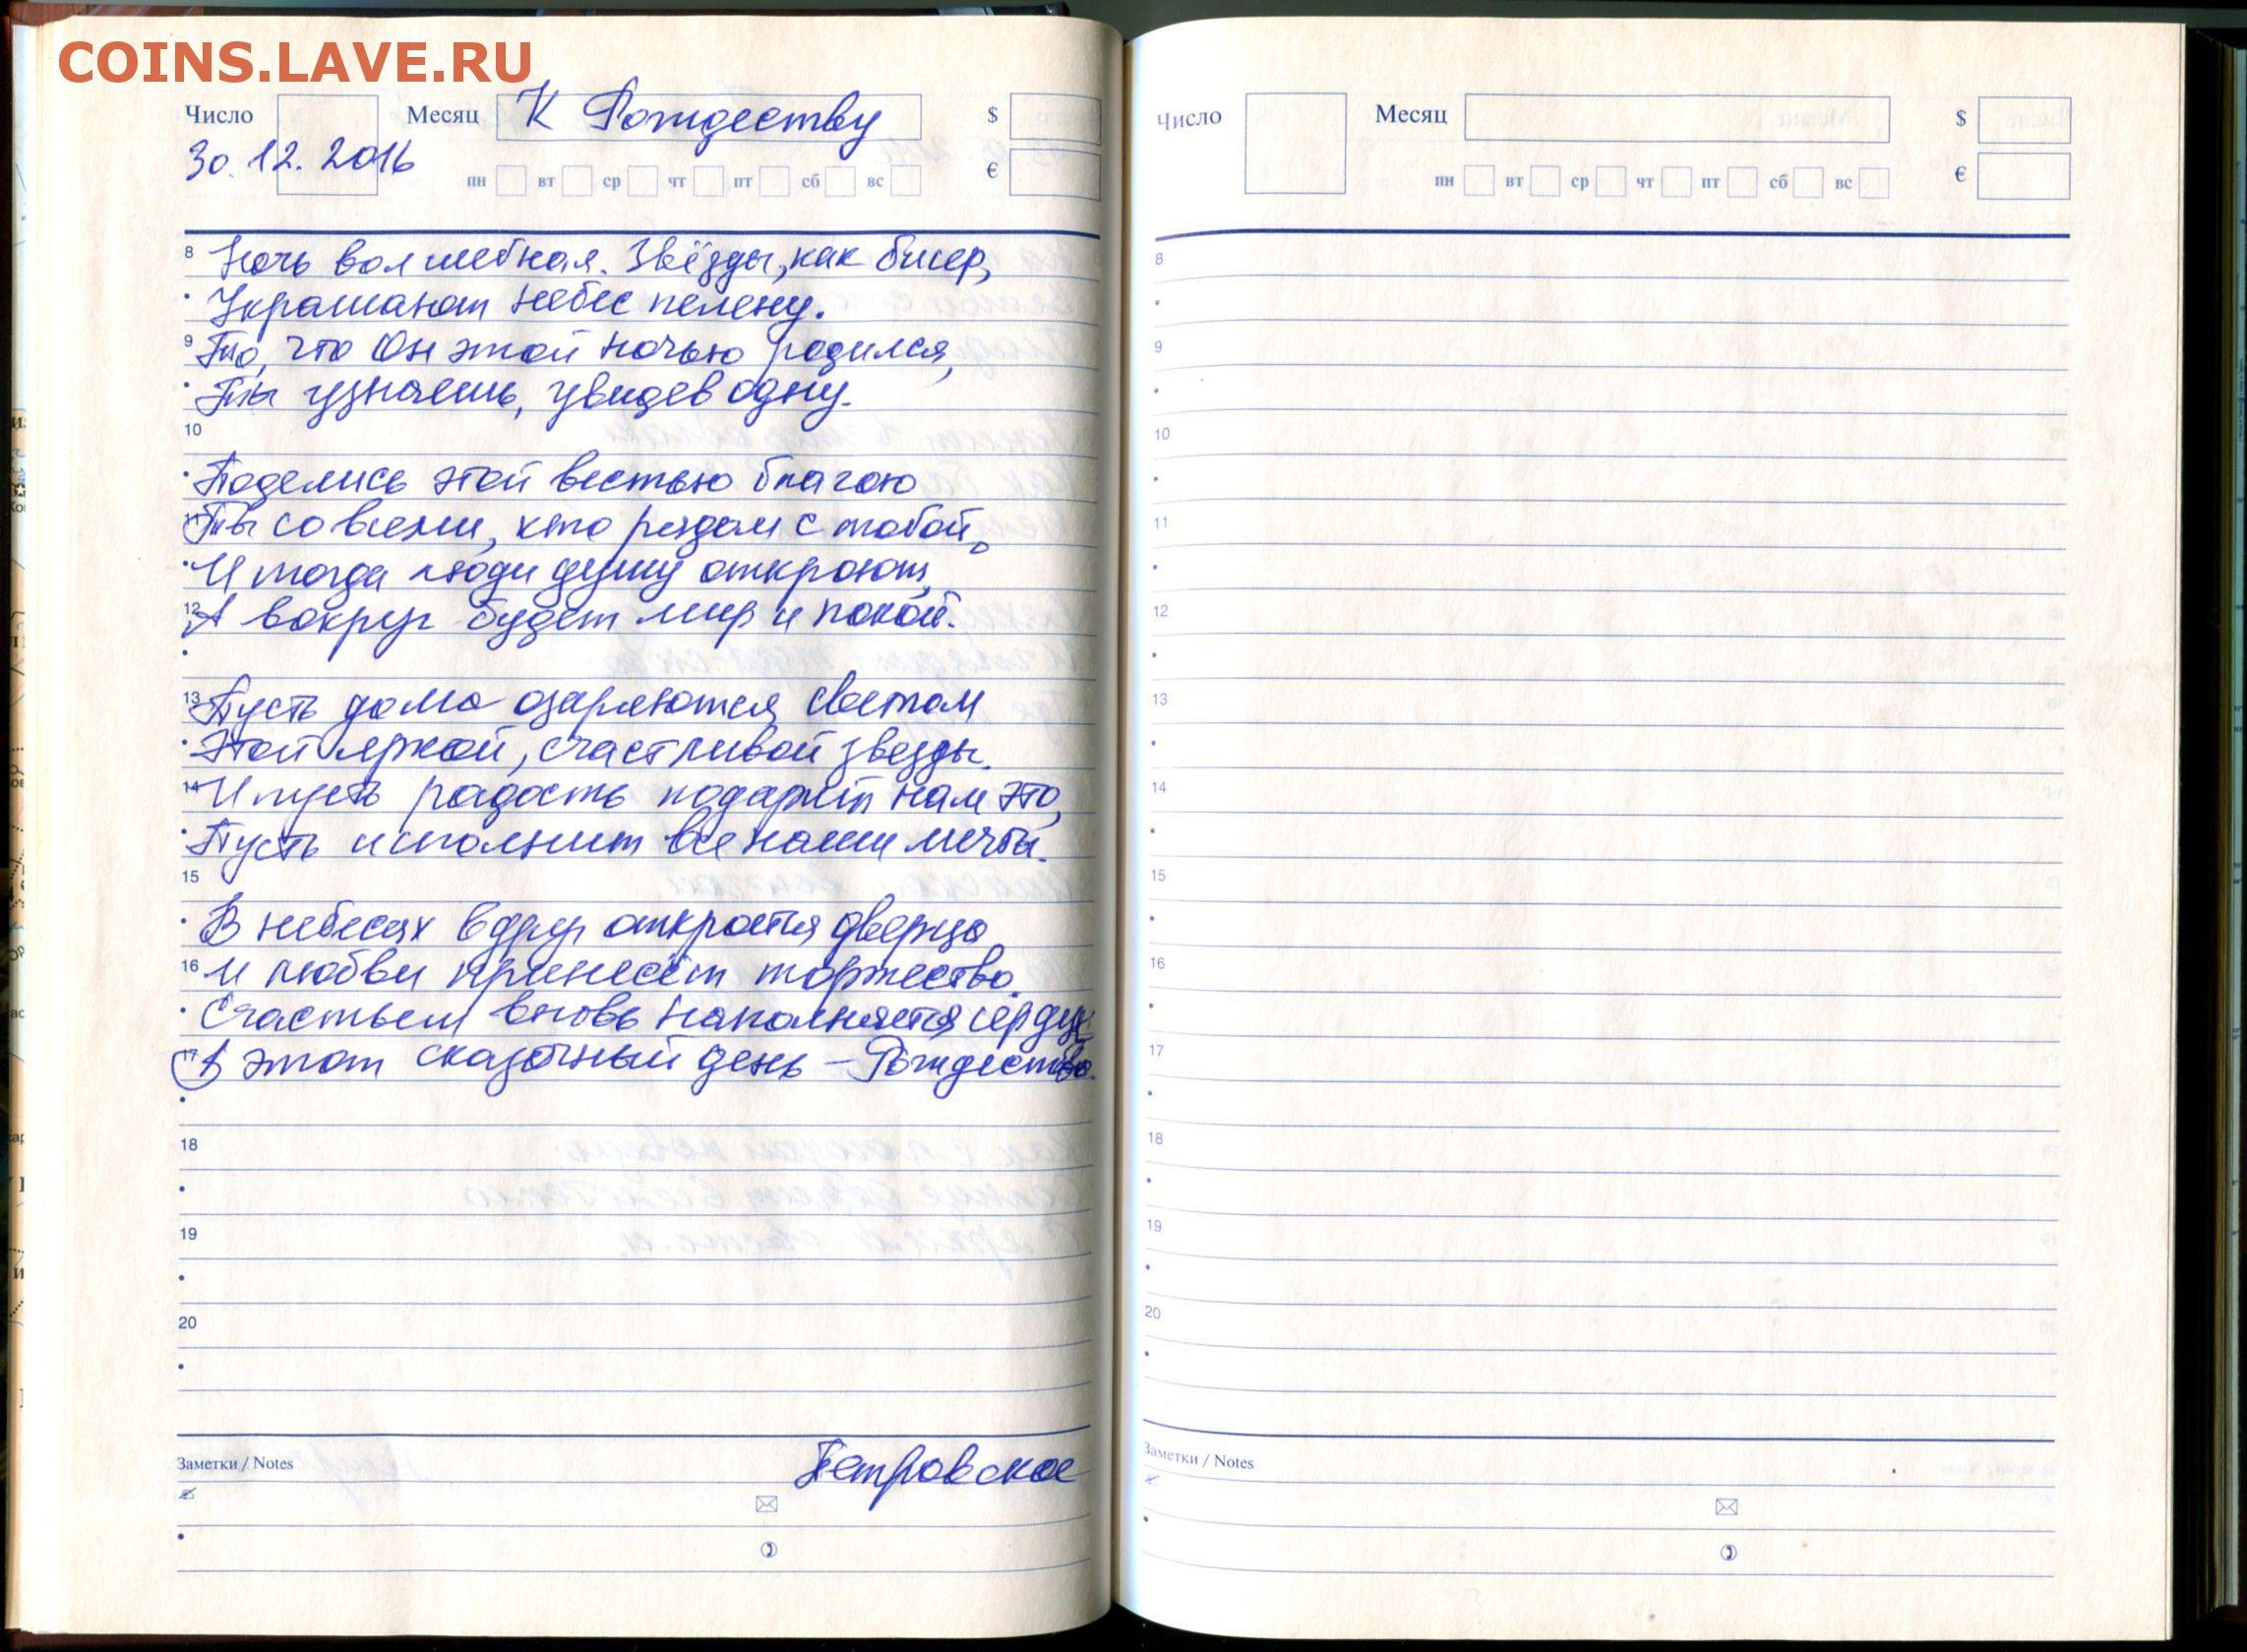 COINS.LAVE.RU
Число Месяц К Рождеству $
30.12.2016 пн вт ср чт пт сб вс €
8 Ночь волшебная. Звёзды, как бисер,
Украшают небес пелену.
9 То, что Он этой ночью родился,
Ты узнаешь, увидев одну.
10
Поделись этой вестью благою
11 Ты со всеми, кто рядом с тобой,
И тогда люди душу откроют,
12 А вокруг будет мир и покой.
13 Пусть дома озаряются светом
Этой яркой, счастливой звезды.
14 И пусть радость подарит нам это,
Пусть исполнит все наши мечты.
15
В небесах вдруг откроется дверца
16 И любви принесёт торжество.
Счастьем вновь наполняется сердце
17 В этот сказочный день – Рождество.
18
19
20
Заметки / Notes Петровское
Число Месяц $
пн вт ср чт пт сб вс €
8
9
10
11
12
13
14
15
16
17
18
19
20
Заметки / Notes